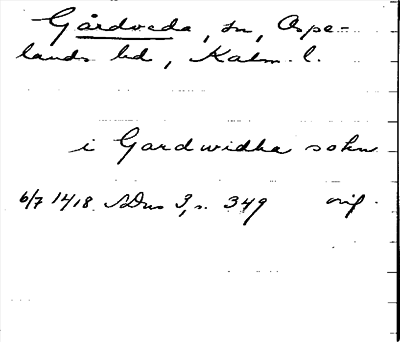 Gårdveda, sn, Aspe-
lands hd, Kalm. l.
i Gardwidha sokn
6/7 1418 SDns 3, s. 349 orig.